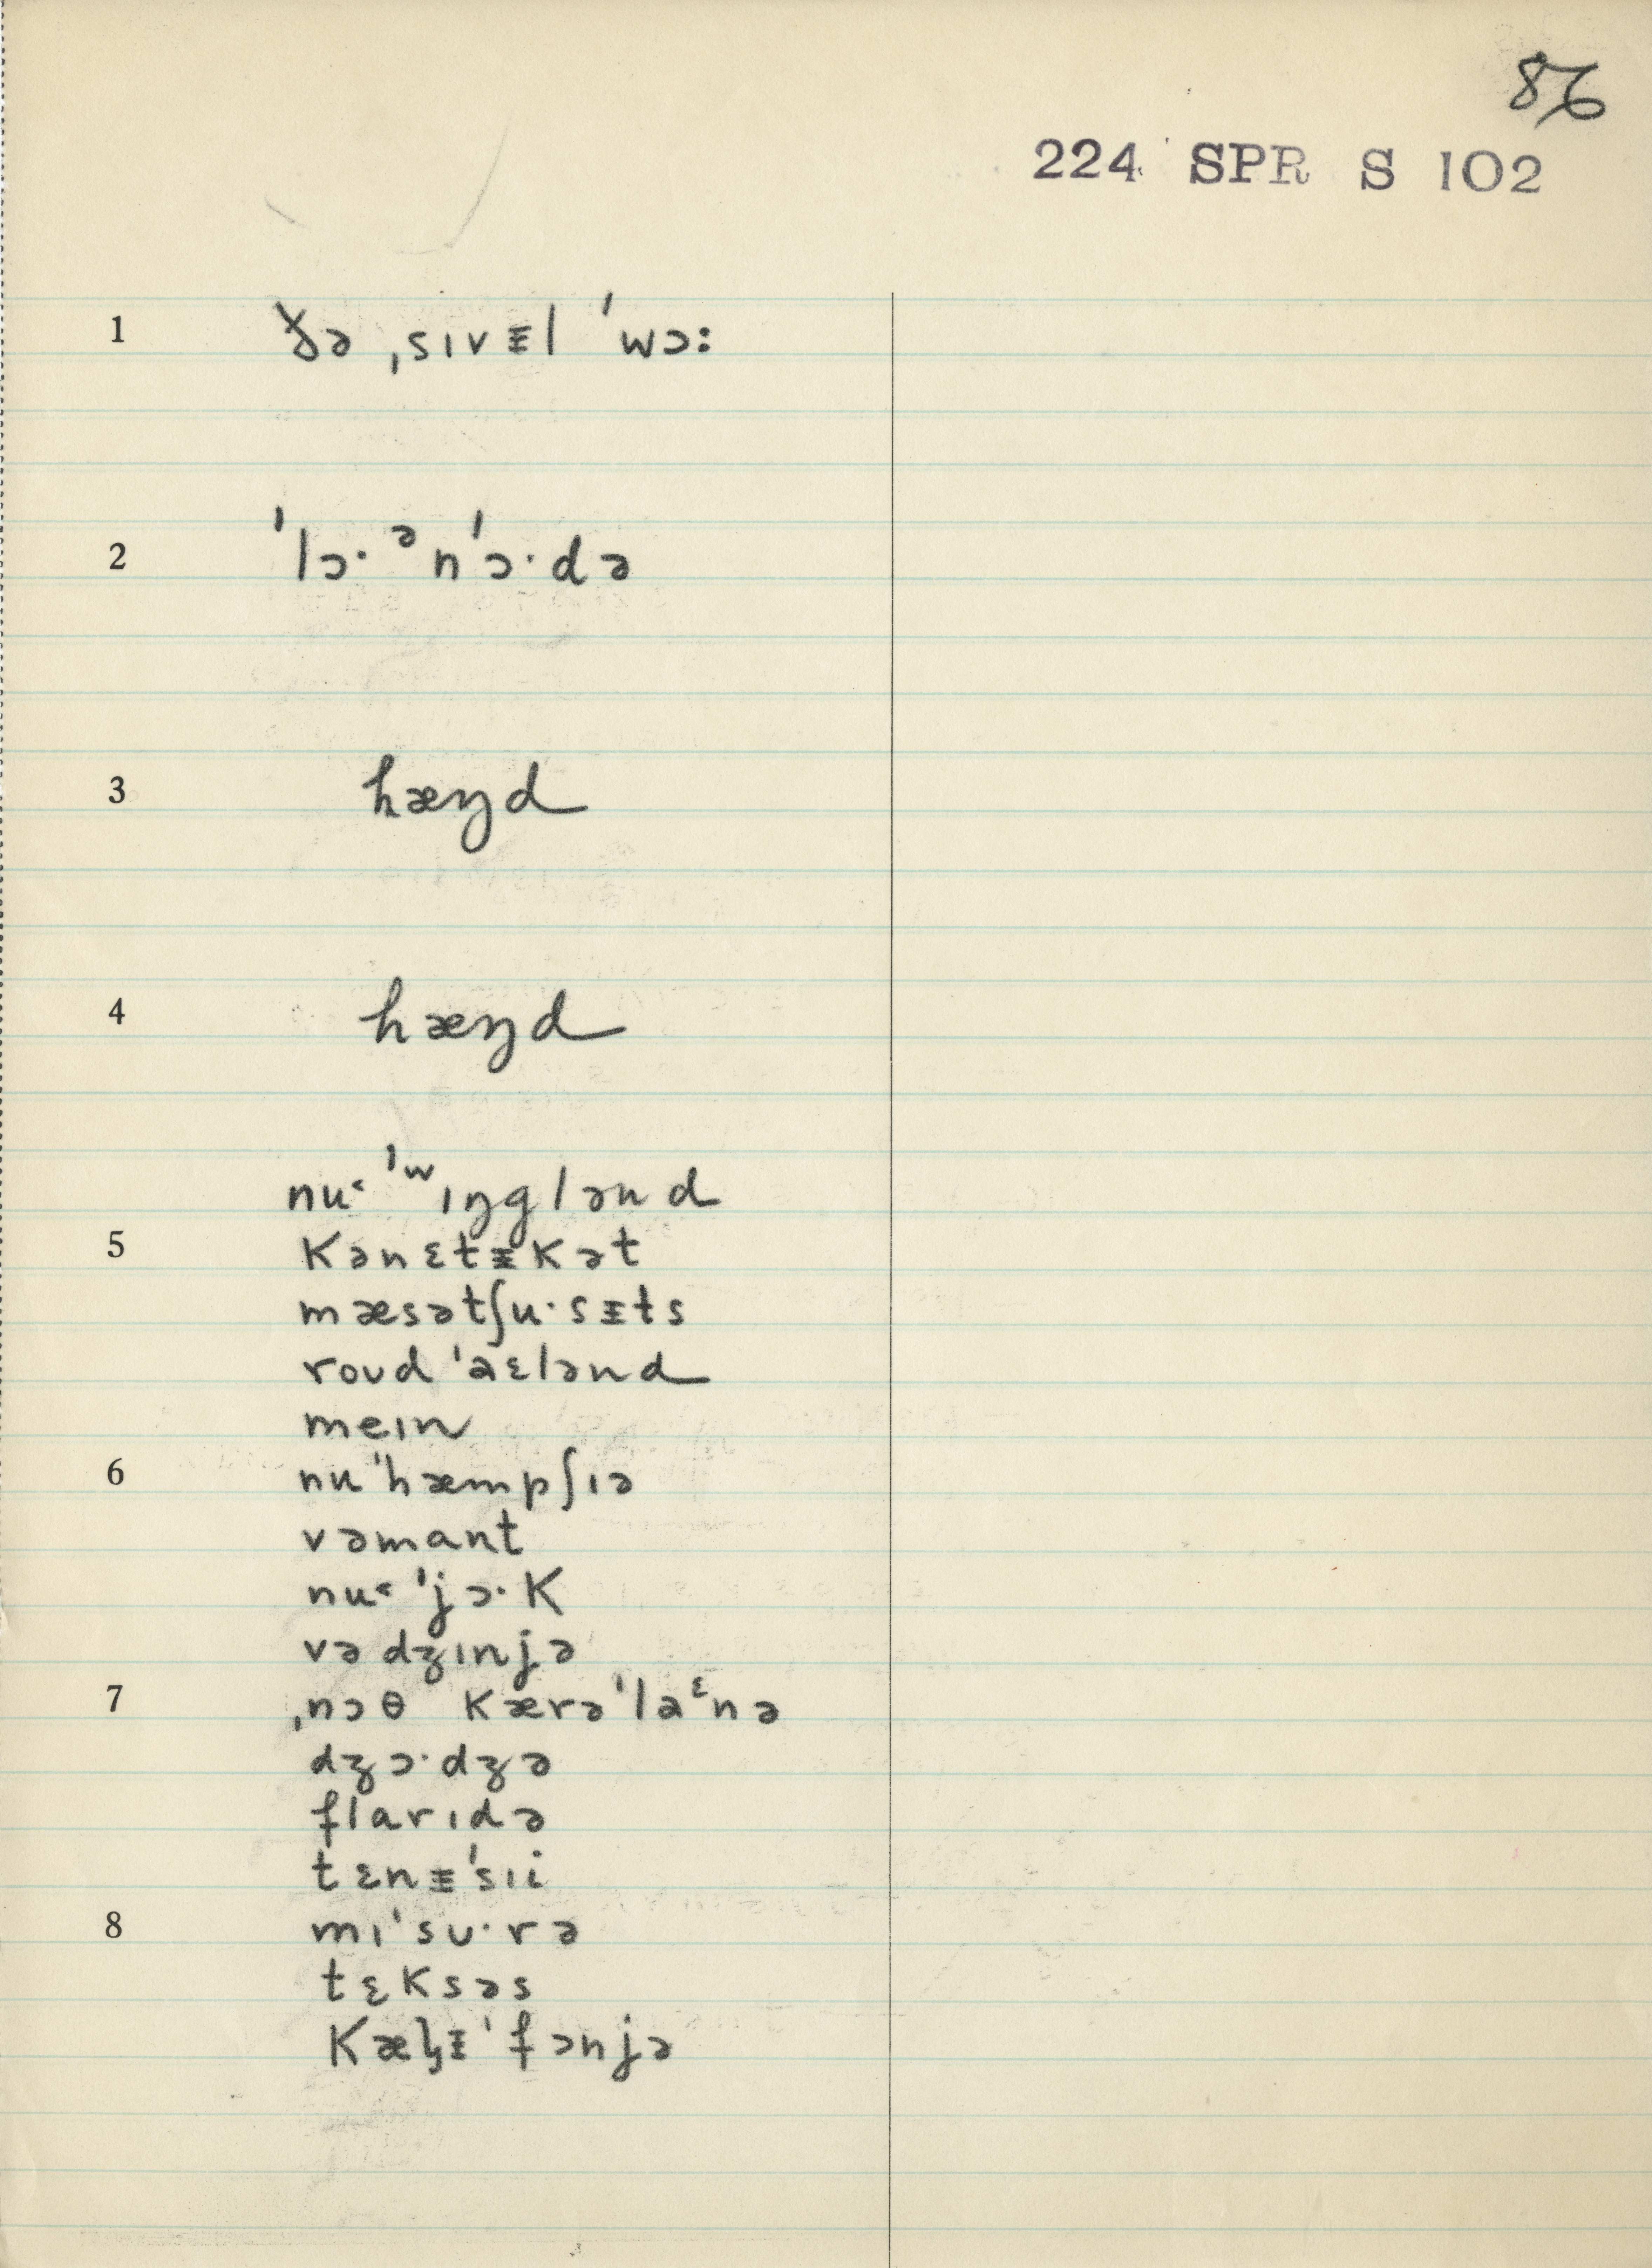 86
224 SPR S 102
1 ðə ˌsɪvᵻl ˈwɔː
2 ˈlɔˑ ᵊnˈɔˑdə
3 hæŋd
4 hæŋd
nu˂ ˈʷɪŋglənd
5 kənɛtᵻkət
mæsətʃuˑsᵻts
roʊd ˈaɛlənd
meɪn
6 nuˈhæmpʃɪə
vəmant
nu˂ ˈjɔˑk
vədʒɪnjə
7 ˌnɔθ kærəˈlaᵋnə
dʒɔˑdʒə
flarɪdə
tɛnᵻˈsɪi
8 mɪˈsʊˑrə
tɛksəs
kæl̡ᵻˈfɔnjə